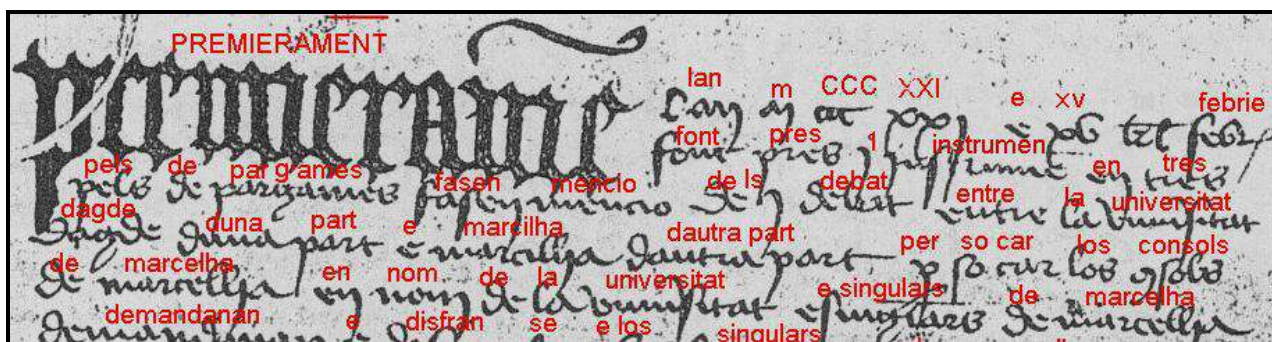 PREMIERAMENT
lan m CCC XXI e xv febrie
font pres 1 instrumen en tres
pels de par g'ames fasen mencio de ls debat entre la universitat
dagde duna part e marcilha dautra part per so car los consols
de marcelha en nom de la universitat e singulars de marcelha
demandanan e disfran se e los singulars